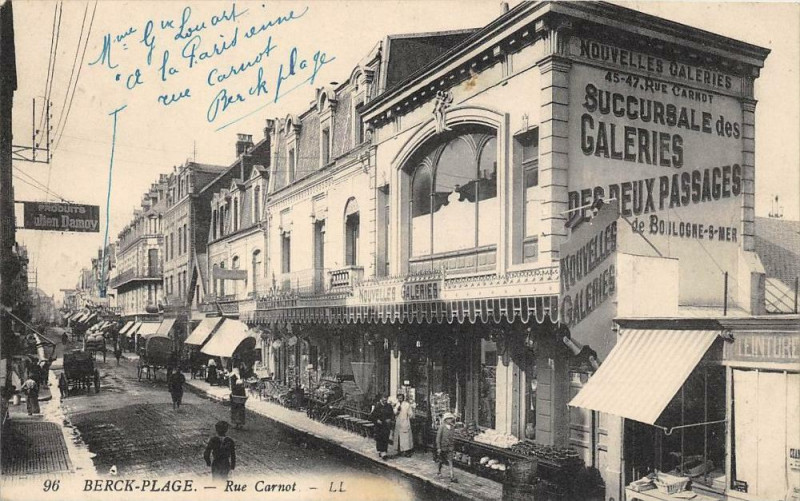 Mme Gve Louart
"à la Parisienne
rue Carnot
Berck plage
PRODUITS
Julien Damoy
NOUVELLES GALERIES
45-47, RUE CARNOT
SUCCURSALE des
GALERIES
DES DEUX PASSAGES
de BOULOGNE-S-MER
NOUVELLES
GALERIES
NOUVELLES GALERIES
TEINTURE
96 BERCK-PLAGE. - Rue Carnot - LL